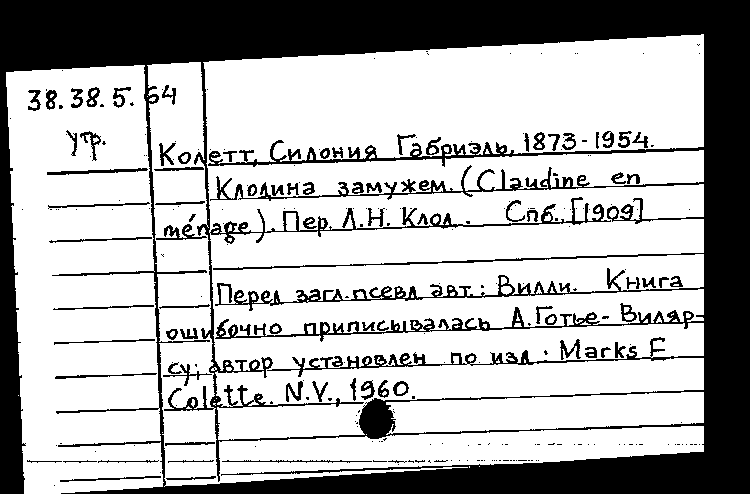 38.38.5.64
утр.
Колетт, Сидония Габриэль, 1873-1954.
Клодина замужем. (Claudine en
ménage). Пер. Л.Н. Клод. Спб., [1909]
Перед загл. псевд. авт.: Вилли. Книга
ошибочно приписывалась А. Готье-Виляр-
су; автор установлен по изд.: Marks E
Colette. N.V., 1960.